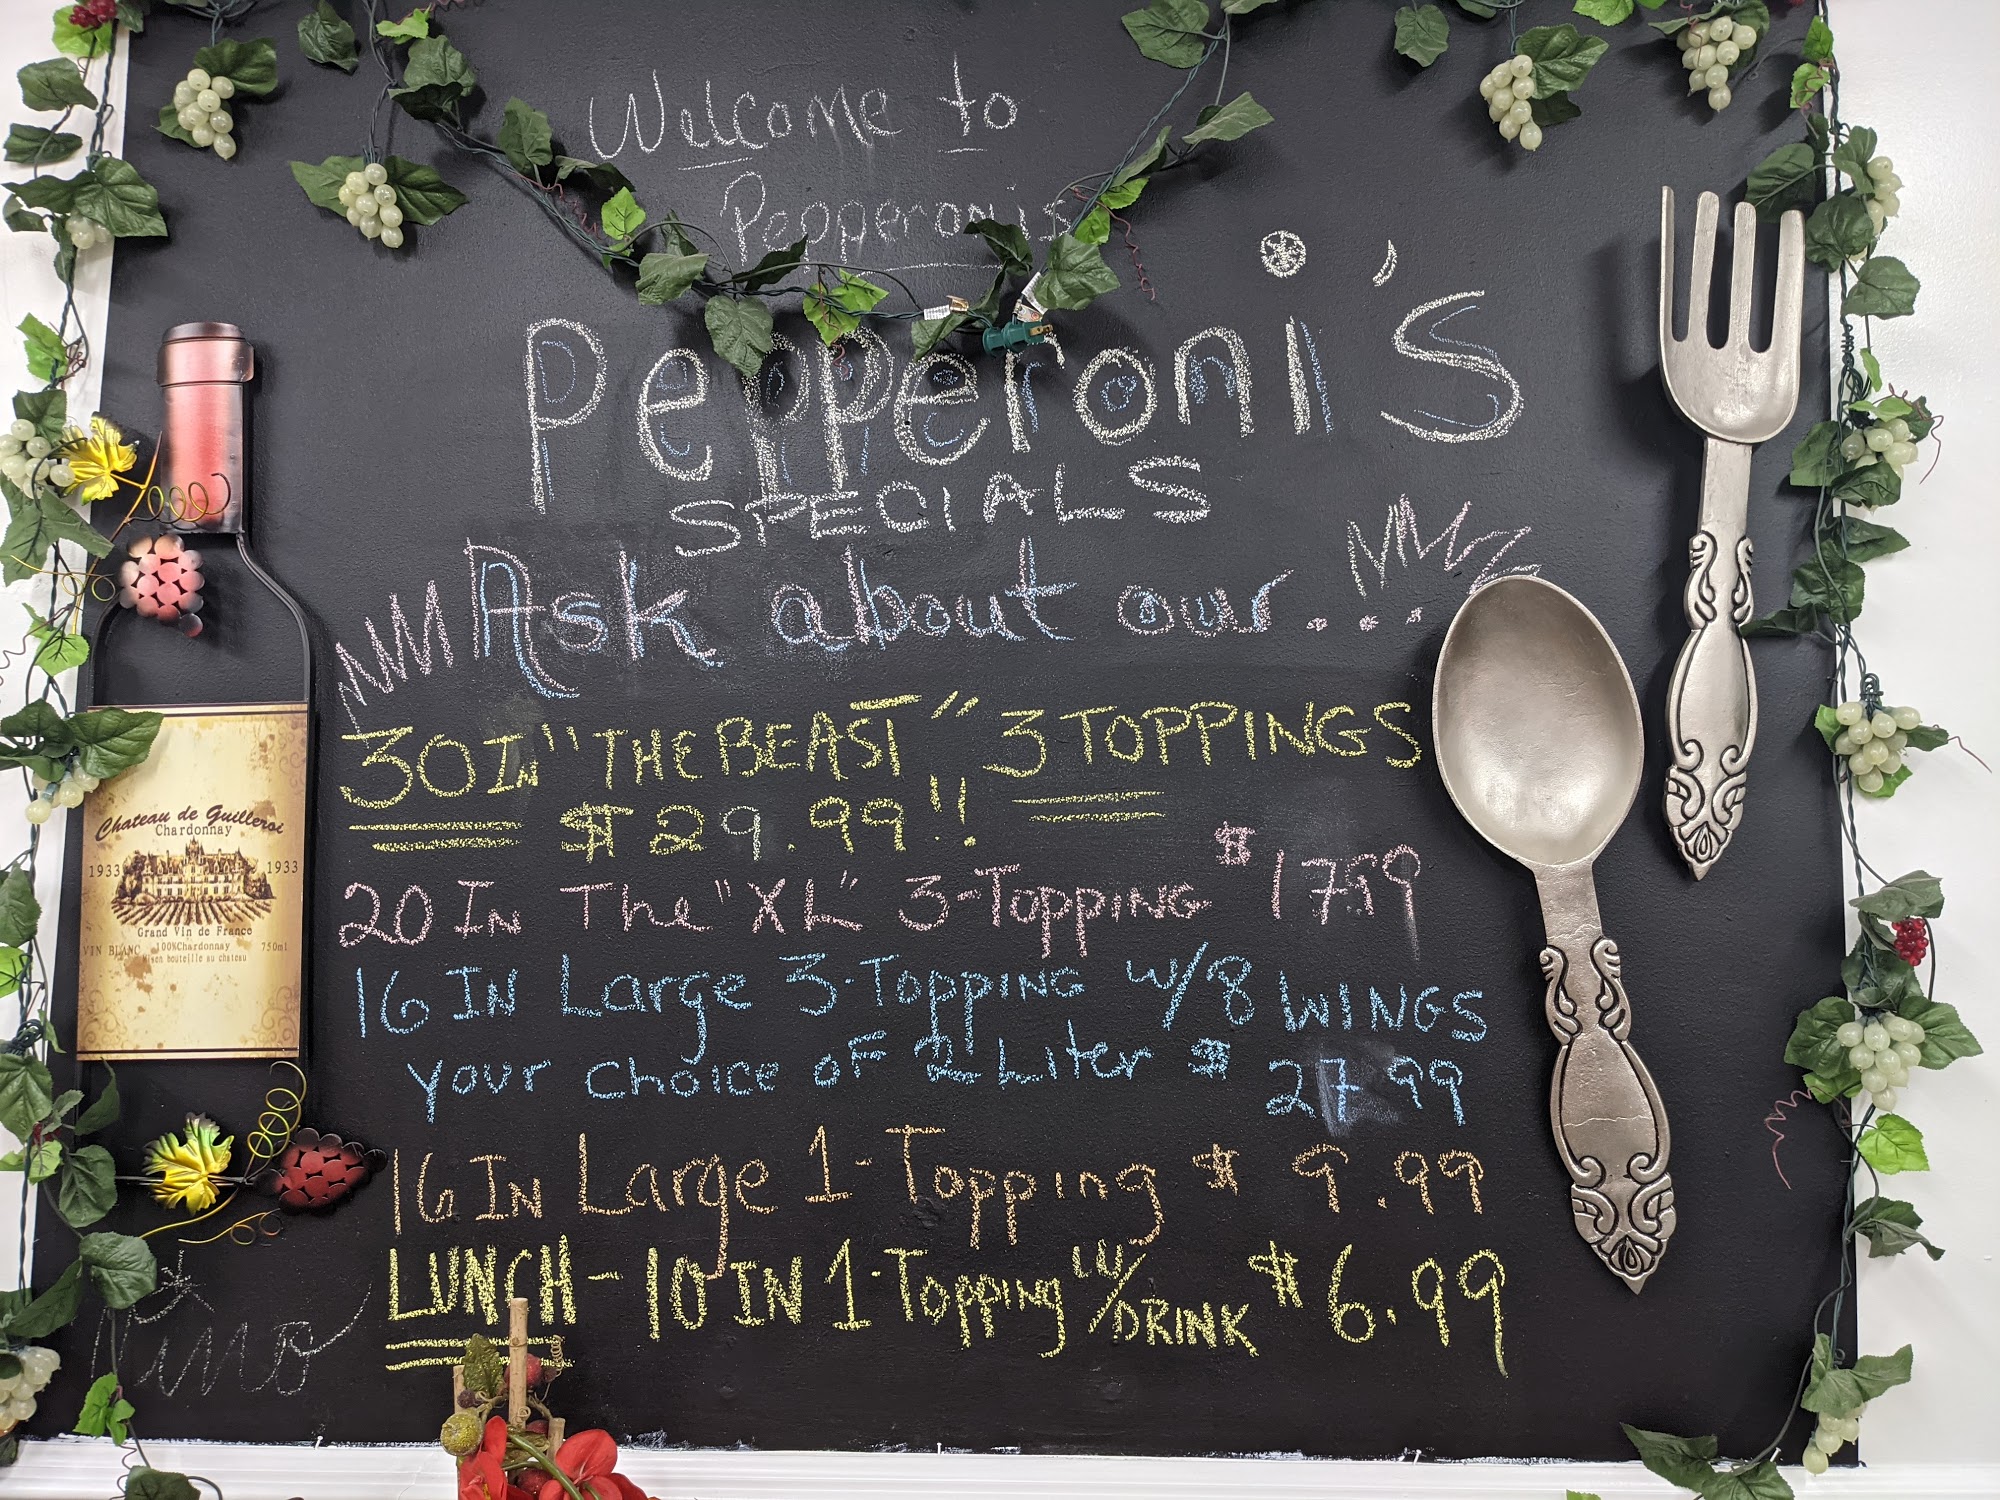 Welcome to
Pepperonis
Pepperoni's
SPECIALS
Ask about our...
30 IN "THE BEAST" 3 TOPPINGS
$29.99!!
20 IN The "XL" 3-TOPPING $17.99
16 IN Large 3-TOPPING w/8 WINGS
your choice OF 2 Liter $27.99
16 IN Large 1-Topping $9.99
LUNCH - 10 IN 1-Topping w/DRINK $6.99
Chateau de Guilleroi
Chardonnay
1933 1933
Grand Vin de France
VIN BLANC 100%Chardonnay 750ml
Misen bouteille au chateau